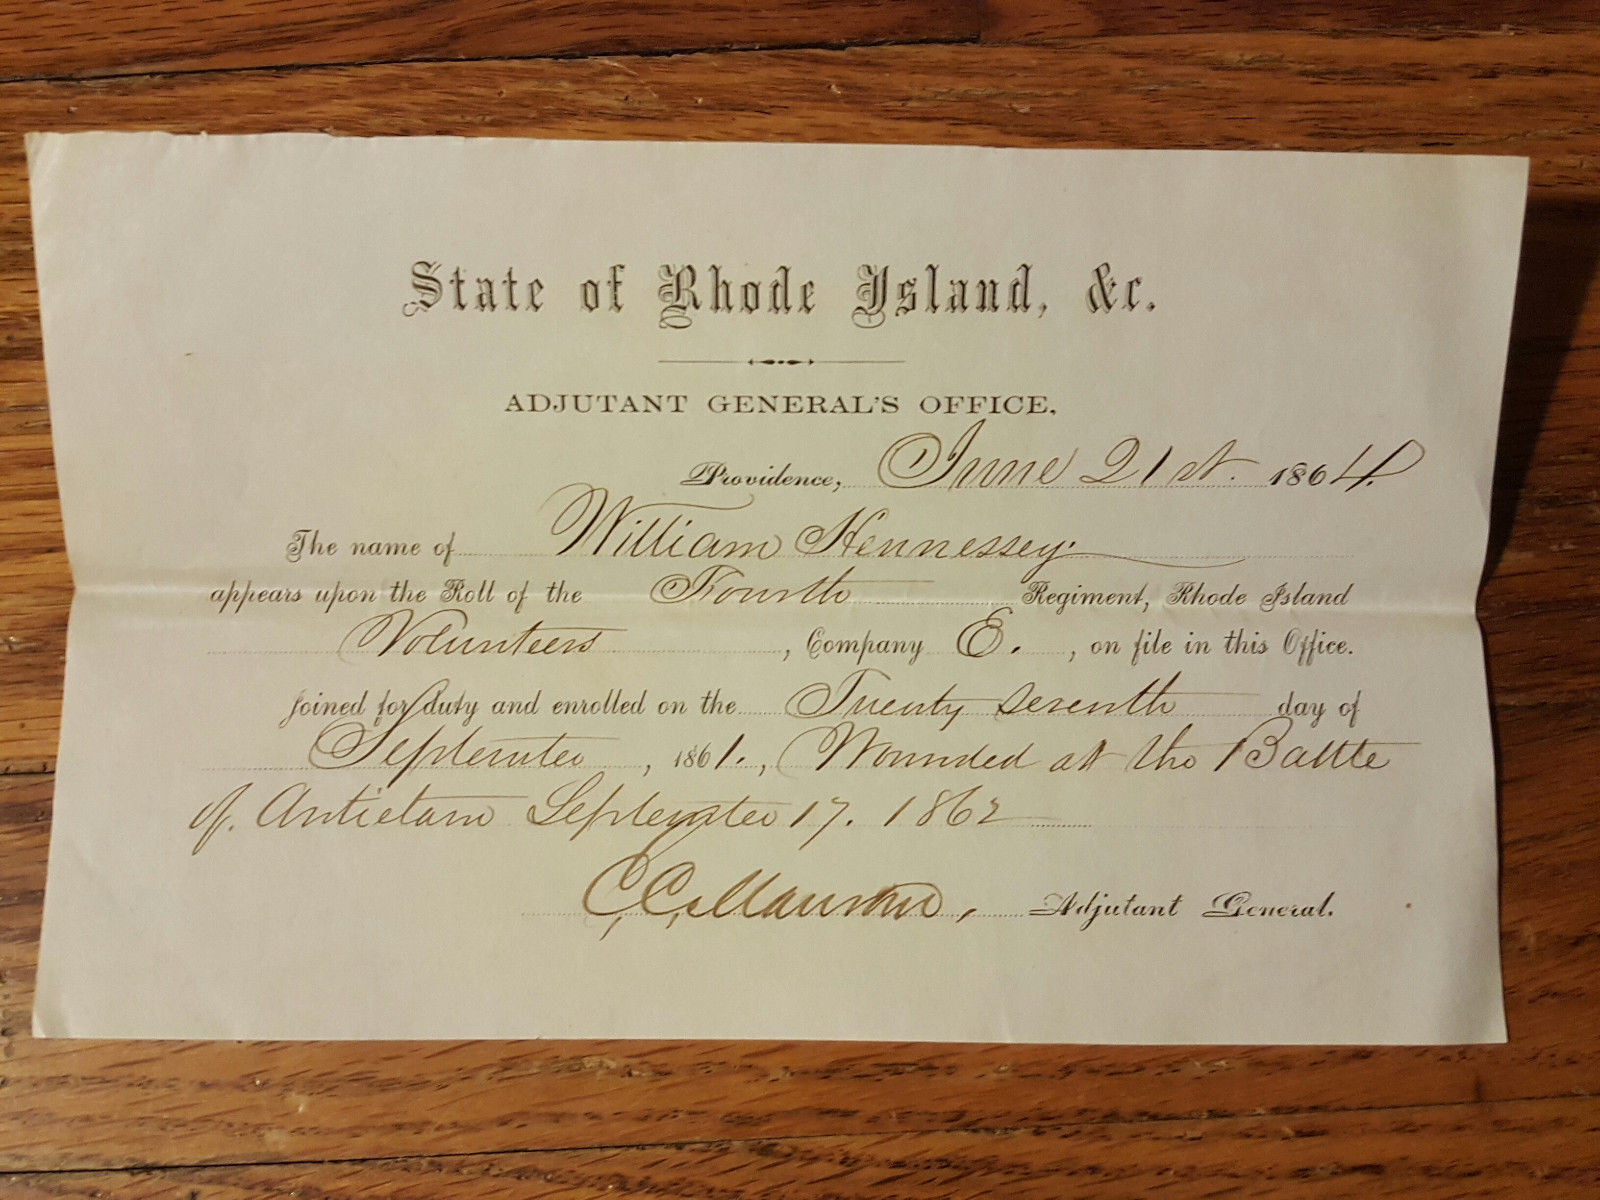 State of Rhode Island, &c.
ADJUTANT GENERAL'S OFFICE,
Providence, June 21st. 1864.
The name of William Hennessey.
appears upon the Roll of the Fourth Regiment, Rhode Island
Volunteers, Company E., on file in this Office.
Joined for duty and enrolled on the Twenty seventh day of
September, 1861., Wounded at the Battle
of. Antietam September 17. 1862
Adjutant General.